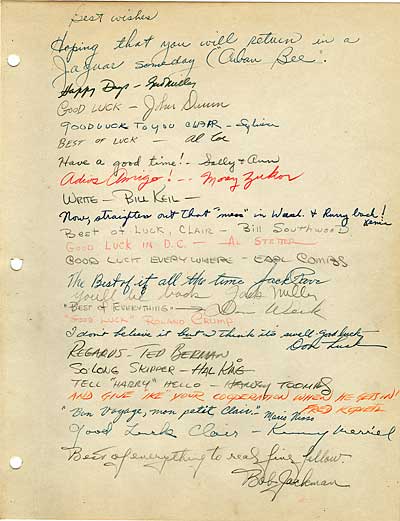 Best wishes
Hoping that you will return in a
Jaguar someday (Cuban Bee.
Happy Days -
GOOD LUCK - John Dunn
GOODLUCK TO YOU CLAIR - Sylvia
BEST OF LUCK - Al
Have a good time! - Sally & Ann
Adios Amigo! -
WRITE - BILL KEIL -
Now, straighten out that "mess" in Wash. & Hurry back!
BEST OF LUCK, CLAIR - Bill Southwood
GOOD LUCK IN D.C. - AL STETTER
GOOD LUCK EVERYWHERE - EARL COMBS
The Best of it all the time Jack
You'll be back Jack Miller
"BEST OF EVERYTHING" -
"GOOD LUCK" ROLAND CRUMP
I don't believe it but I think its swell - good luck
Don
REGARDS - TED BERMAN
SO LONG SKIPPER - HAL KING
TELL "HARRY" HELLO - HARVEY TOOMBS
AND GIVE IKE YOUR COOPERATION WHEN HE GETS IN!
FRED
"Bon Voyage, mon petit Clair."
Good Luck Clair - Kenny
Best of everything to real fine fellow.
Bob Jackman